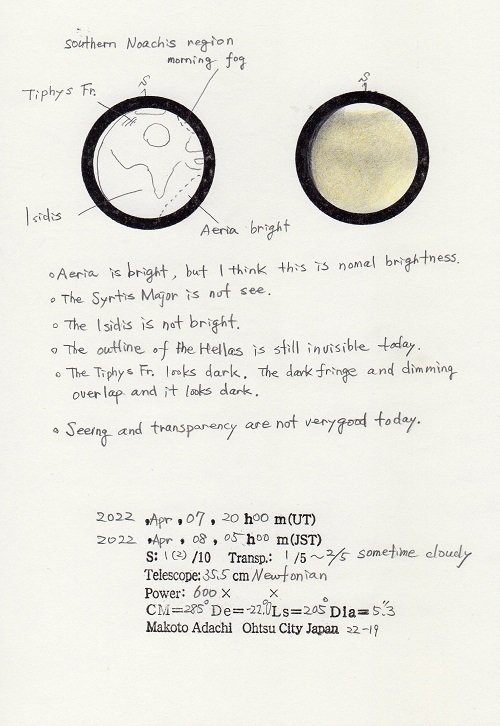 southern Noachis region
morning fog
S
Tiphys Fr.
S
Isidis
Aeria bright
○ Aeria is bright, but I think this is nomal brightness.
○ The Syrtis Major is not see.
○ The Isidis is not bright.
○ The outline of the Hellas is still invisible today.
○ The Tiphys Fr. looks dark. The dark fringe and dimming
overlap and it looks dark.
○ Seeing and transparency are not very good today.
2022 ,Apr , 07 , 20 h00 m(UT)
2022 ,Apr , 08 , 05 h00 m(JST)
S: 1(2) /10 Transp.: 1 /5 ~ 2/5 sometime cloudy
Telescope: 35.5 cm Newtonian
Power: 600 × ×
CM=285° De=-22.0° Ls=205° Dia=5."3
Makoto Adachi Ohtsu City Japan 22-19